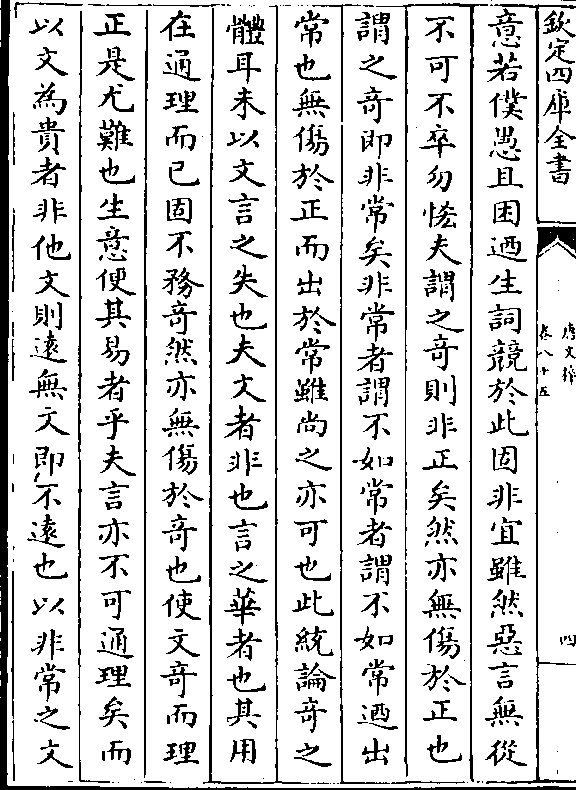 欽定四庫全書
唐文粹
卷八十五
四
意若僕愚且困迺生詞競於此固非宜雖然惡言無從
不可不卒勿恡夫謂之奇則非正矣然亦無傷於正也
謂之奇即非常矣非常者謂不如常者謂不如常迺出
常也無傷於正而出於常雖尚之亦可也此統論奇之
體耳未以文言之失也夫文者非也言之華者也其用
在通理而已固不務奇然亦無傷於奇也使文奇而理
正是尤難也生意便其易者乎夫言亦不可通理矣而
以文為貴者非他文則遠無文即不遠也以非常之文